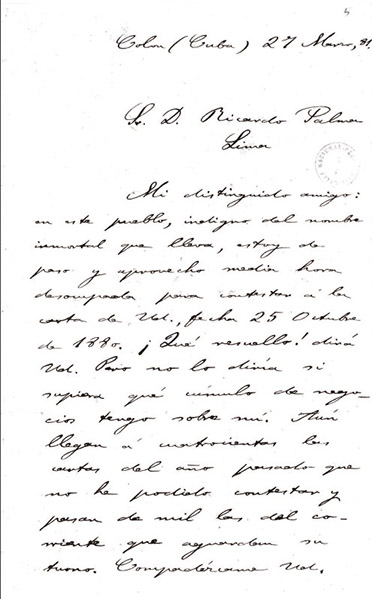 4
Colon (Cuba) 27 Marzo, 81.
Sr. D. Ricardo Palma
Lima
Mi distinguido amigo:
en este pueblo, indigno del nombre
inmortal que lleva, estoy de
paso y aprovecho media hora
desocupada para contestar á la
carta de Ud., fecha 25 Octubre
de 1880. ¡Qué resuello! dirá
Ud. Pero no lo diría si
supiera qué cúmulo de nego-
cios tengo sobre mí. Aún
llegan á cuatrocientas las
cartas del año pasado que
no he podido contestar y
pasan de mil las del co-
rriente que aguardan su
turno. Compadézcame Ud.